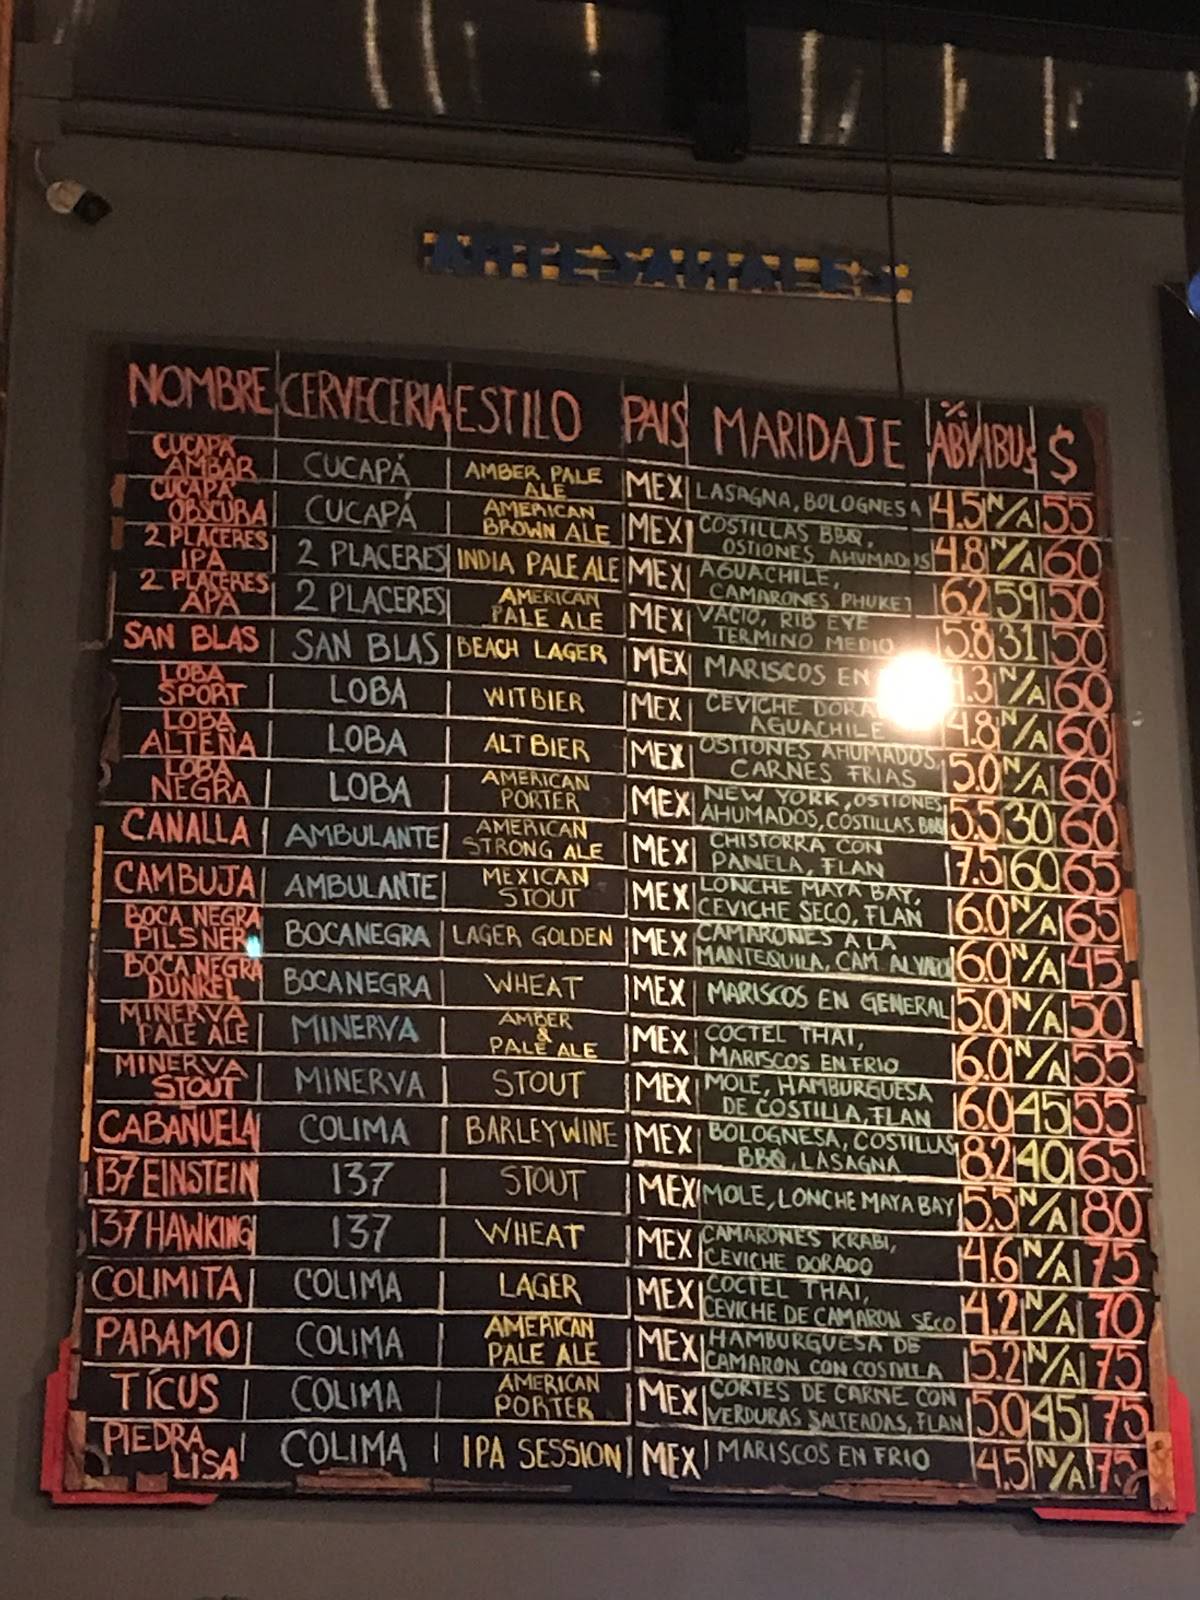 ARTESANALES
NOMBRE CERVECERIA ESTILO PAIS MARIDAJE % ABV IBUs $
CUCAPÁ AMBAR CUCAPÁ AMBER PALE ALE MEX LASAGNA, BOLOGNESA 4.5 N/A 55
CUCAPÁ OBSCURA CUCAPÁ AMERICAN BROWN ALE MEX COSTILLAS BBQ, OSTIONES AHUMADOS 4.8 N/A 60
2 PLACERES IPA 2 PLACERES INDIA PALE ALE MEX AGUACHILE, CAMARONES PHUKET 6.2 59 50
2 PLACERES APA 2 PLACERES AMERICAN PALE ALE MEX VACIO, RIB EYE TERMINO MEDIO 5.8 31 50
SAN BLAS SAN BLAS BEACH LAGER MEX MARISCOS EN .3 N/A 60
LOBA SPORT LOBA WITBIER MEX CEVICHE AGUACHILE 4.8 N/A 60
LOBA ALTEÑA LOBA ALTBIER MEX OSTIONES AHUMADOS, CARNES FRIAS 5.0 N/A 60
LOBA NEGRA LOBA AMERICAN PORTER MEX NEW YORK, OSTIONES AHUMADOS, COSTILLAS BBQ 5.5 30 60
CANALLA AMBULANTE AMERICAN STRONG ALE MEX CHISTORRA CON PANELA, FLAN 7.5 60 65
CAMBUJA AMBULANTE MEXICAN STOUT MEX LONCHE MAYA BAY, CEVICHE SECO, FLAN 6.0 N/A 65
BOCA NEGRA PILSNER BOCANEGRA LAGER GOLDEN MEX CAMARONES A LA MANTEQUILA, CAM. AL VAPOR 6.0 N/A 45
BOCA NEGRA DUNKEL BOCANEGRA WHEAT MEX MARISCOS EN GENERAL 5.0 N/A 50
MINERVA PALE ALE MINERVA AMBER & PALE ALE MEX COCTEL THAI, MARISCOS EN FRIO 6.0 N/A 55
MINERVA STOUT MINERVA STOUT MEX MOLE, HAMBURGUESA DE COSTILLA, FLAN 6.0 45 55
CABAÑUELA COLIMA BARLEYWINE MEX BOLOGNESA, COSTILLAS BBQ, LASAGNA 8.2 40 65
137 EINSTEIN 137 STOUT MEX MOLE, LONCHE MAYA BAY 5.5 N/A 80
137 HAWKING 137 WHEAT MEX CAMARONES KRABI, CEVICHE DORADO 4.6 N/A 75
COLIMITA COLIMA LAGER MEX COCTEL THAI, CEVICHE DE CAMARON SECO 4.2 N/A 70
PARAMO COLIMA AMERICAN PALE ALE MEX HAMBURGUESA DE CAMARON CON COSTILLA 5.2 N/A 75
TÍCUS COLIMA AMERICAN PORTER MEX CORTES DE CARNE CON VERDURAS SALTEADAS, FLAN 5.0 45 75
PIEDRA LISA COLIMA IPA SESSION MEX MARISCOS EN FRIO 4.5 N/A 75